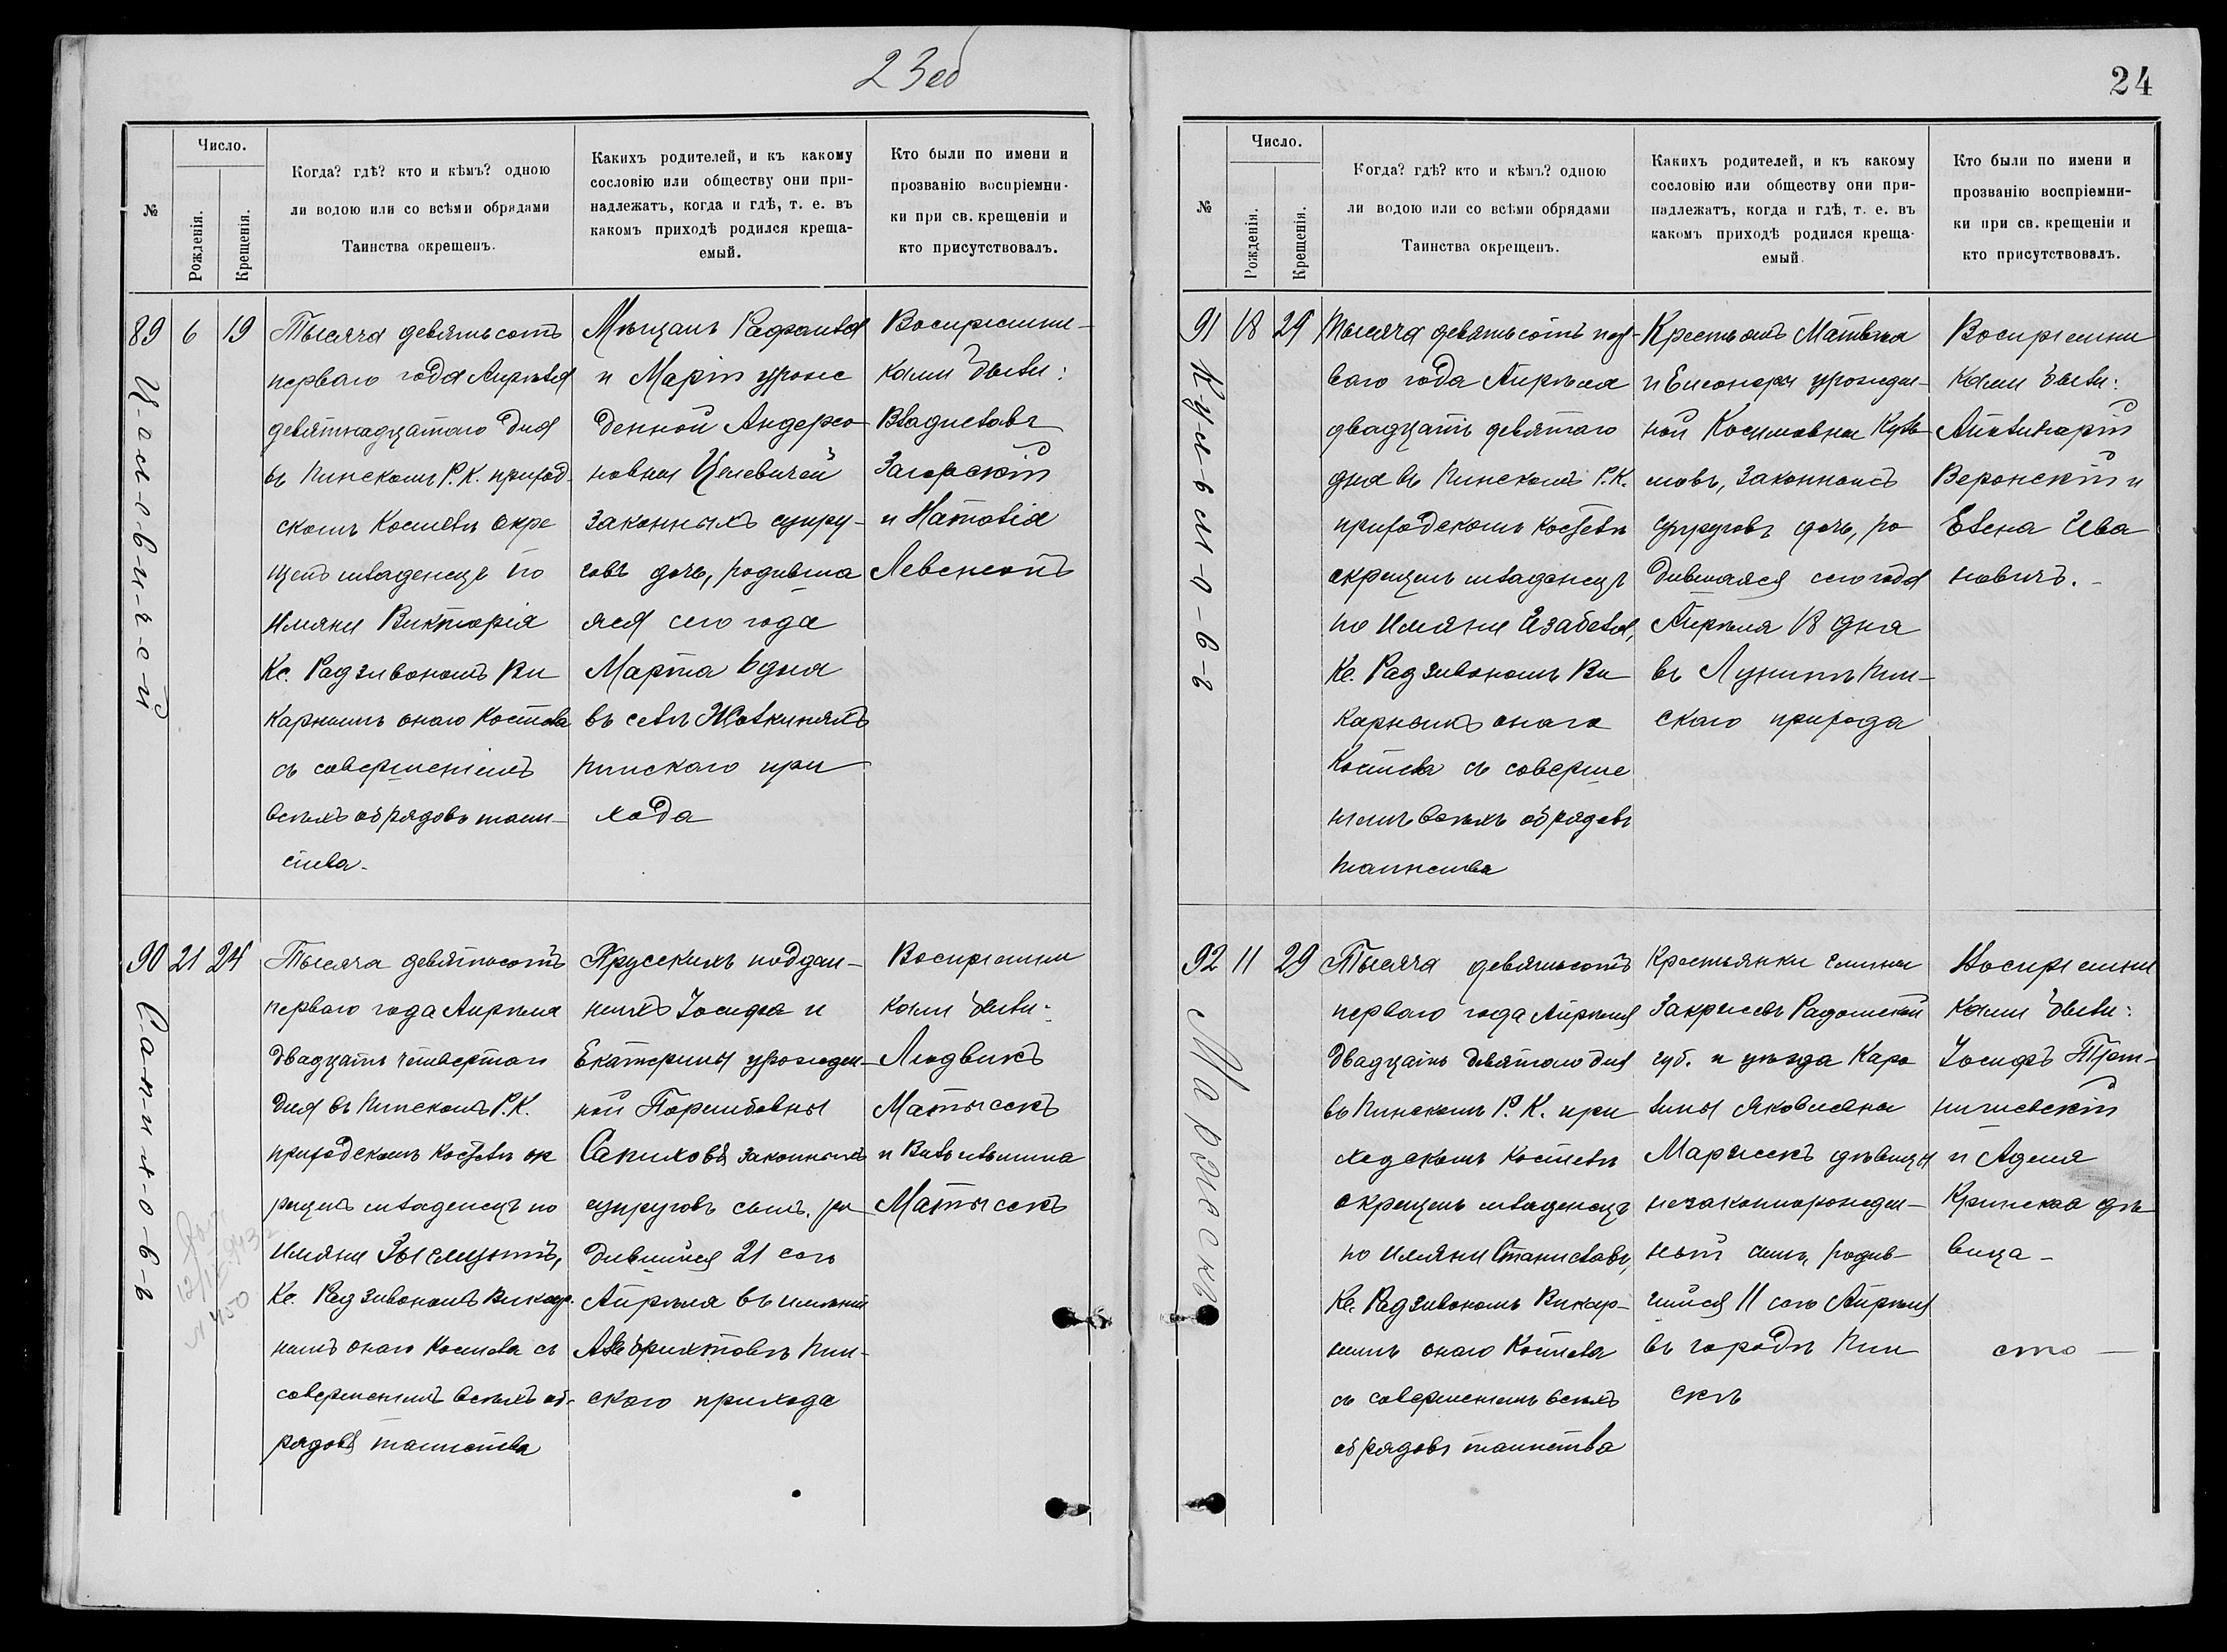 23об
№
Число.
Рожденія.
Крещенія.
Когда? гдѣ? кто и кѣмъ? одною
ли водою или со всѣми обрядами
Таинства окрещенъ.
Какихъ родителей, и къ какому
сословію или обществу они при-
надлежатъ, когда и гдѣ, т. е. въ
какомъ приходѣ родился креща-
емый.
Кто были по имени и
прозванію воспріемни-
ки при св. крещеніи и
кто присутствовалъ.
89 6 19
Ц-ел-е-в-и-ч-е-й
Тысяча девятьсотъ
перваго года Апрѣля
девятнадцатаго дня
въ Пинскомъ Р. К. приход-
скомъ Костелѣ окре
щенъ младенецъ по
имяни Викторія
Кс. Радзивономъ Ви
карнымъ онаго Костела
съ совершеніемъ
всѣхъ обрядовъ таин-
ства.
Мѣщанъ Рафаила
и Маріи урож
денной Андерсо
новны Целевичей
законныхъ супру-
говъ дочь, родивша
яся сего года
Марта 6 дня
въ селѣ Жолкиняхъ
Пинскаго при
хода
Воспріемни-
ками были:
Владиславъ
Загорскій
и Наталія
Левсконъ
90 21 24
С-а-п-и-х-о-в-ъ
Тысяча девятьсотъ
перваго года Апрѣля
двадцать четвертаго
дня въ Пинскомъ Р. К.
приходскомъ Костелѣ ок
рещенъ младенецъ по
имяни Зысмунтъ,
Кс. Радзивономъ Викар-
нымъ онаго Костела съ
совершеніемъ всѣхъ об-
рядовъ таинства
Прусскихъ поддан-
ныхъ Іосифа и
Екатерины урожден-
ной
Сапиховъ законныхъ
супруговъ сынъ, ро
дившійся 21 сего
Апрѣля въ имѣніи
Альбрихтовѣ Пин-
скаго прихода
Воспріемни
ками были:
Людвикъ
Матысекъ
и Вильгельмина
Матысекъ
12/
№ 450
24
№
Число.
Рожденія.
Крещенія.
Когда? гдѣ? кто и кѣмъ? одною
ли водою или со всѣми обрядами
Таинства окрещенъ.
Какихъ родителей, и къ какому
сословію или обществу они при-
надлежатъ, когда и гдѣ, т. е. въ
какомъ приходѣ родился креща-
емый.
Кто были по имени и
прозванію воспріемни-
ки при св. крещеніи и
кто присутствовалъ.
91 18 29
К-у-л-ь-м-о-в-ъ
Тысяча девятьсотъ пер-
ваго года Апрѣля
двадцать девятаго
дня въ Пинскомъ Р. К.
приходскомъ Костелѣ
окрещенъ младенецъ
по имяни Изабела,
Кс. Радзивономъ Ви
карнымъ онаго
Костела съ соверше
ніемъ всѣхъ обрядовъ
таинства
Крестьянъ Матвѣя
и Елеоноры урожден-
ной Косимовны Куль
мовъ, законныхъ
супруговъ дочь, ро
дившаяся сего года
Апрѣля 18 дня
въ Лунинѣ Пин-
скаго прихода
Воспріемни
ками были:
Аполинарій
Веронскій и
Елена Ива
новичъ.
92 11 29
Марысекъ
Тысяча девятьсотъ
перваго года Апрѣля
двадцать девятаго дня
въ Пинскомъ Р. К. при
ходскомъ Костелѣ
окрещенъ младенецъ
по имяни Станиславъ,
Кс. Радзивономъ Викар-
нымъ онаго Костела
съ совершеніемъ всѣхъ
обрядовъ таинства
Крестьянки гмины
Закржевъ Радомской
губ. и уѣзда Каро
лины Яковлевны
Марысекъ дѣвицы
незаконнорожден-
ный сынъ, родив
шійся 11 сего Апрѣля
въ городѣ Пин
скѣ
Воспріемни
ками были:
Іосифъ
и Аделя
Кринская дѣ
вица
сто